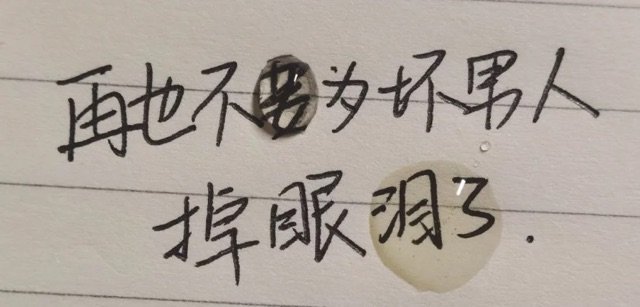 再也不要为坏男人
掉眼泪了.